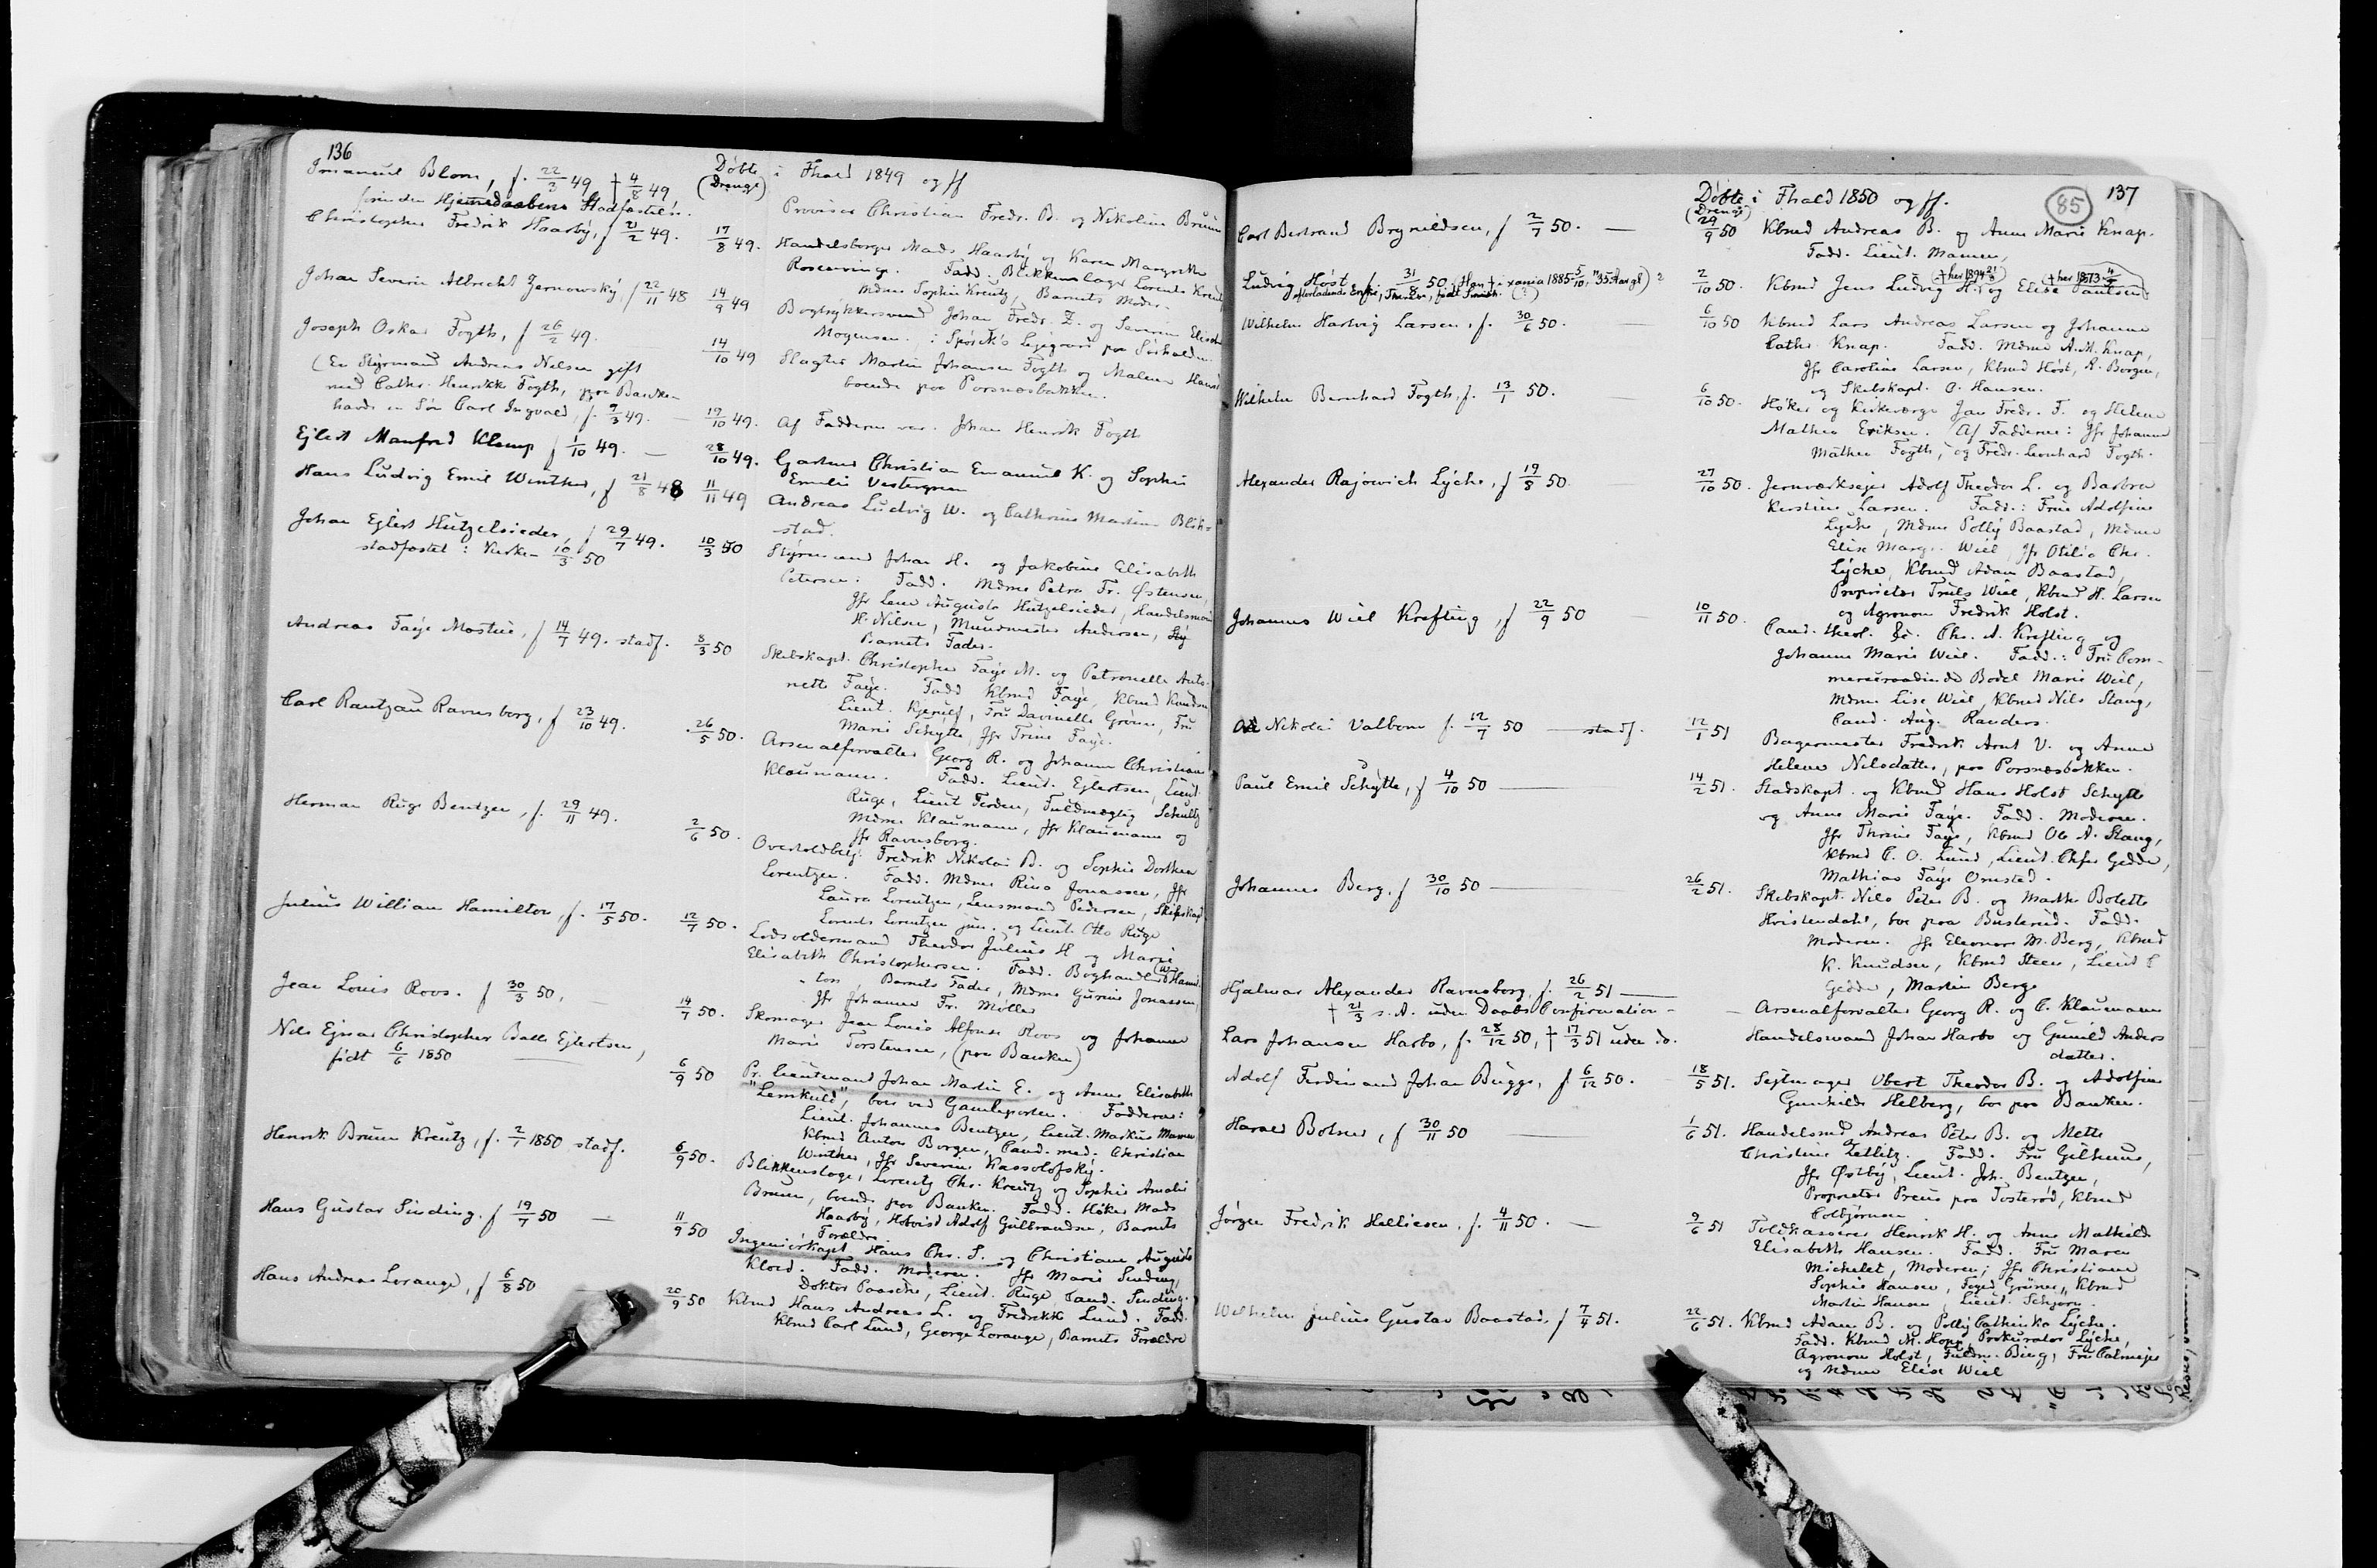 136
Døbte i Fhald 1849 og ff
(Drenge)
Immanuel Blom, f. 22/3 49 † 4/8 49
Provisor Christian Fredr. B. og Nikoline Bruun
Christopher Fredrik Haarby, f 21/2 49.
17/8 49. Handelsborger Mads Haarby og Karen Margrethe
Rosenvinge. Fadd. Blikkenslager Lorentz Kreutz,
Mdme Sophie Kreutz, Barnets Moder.
Johan Severin Albrecht Zernowsky, f 22/11 48
14/9 49 Bogtrykkersvend Johan Fredr. Z. og Severine Elisab.
Mogensen.
Joseph Oskar Fogth, f 26/2 49.
14/10 49 Slagter Martin Johansen Fogth og Malene Hansd
boende paa Porsnæsbakken.
(En Styrmand Andreas Nilsen gift
med Cathr. Henrikke Fogth, paa Banken
havde en Søn Carl Ingvald, f. 7/3 49. — 19/10 49. Af Fadderne var: Johan Henrik Fogth
Ejlert Manfred Klemp f 1/10 49. — 28/10 49. Gartner Christian Emanuel K. og Sophie
Emilie Vestergreen
Hans Ludvig Emil Winther, f 21/8 48 11/11 49 Andreas Ludvig W. og Cathrine Martine Blik-
stad.
Johan Ejlert Hutzelsieder, f 29/7 49. 10/3 50 Styrmand Johan H. og Jakobine Elisabeth
stadfæstet i Kirken 10/3 50
Petersen. Fadd. Mdme Petra Fr. Østensen,
Jfr Lene Augusta Hützelsieder, Handelsmand
H. Nilsen, Mundmester Andersen,
Barnets Fader.
Andreas Faye Mostue, f 14/7 49. stadf. 8/3 50 Skibskapt. Christopher Faye M. og Petronelle Anto-
nette Faye. Fadd Kbmd Faye, Kbmd Knudsen
Lieut. Kjerulf, Fru Davinelle Grøner, Fru
Marie Schytte, Jfr Trine Faye.
Carl Rantzau Ravnsborg, f 23/10 49. 26/5 50. Arsenalforvalter Georg R. og Johanne Christiane
Klaumann. Fadd. Lieut. Ejlertsen, Lieut.
Ruge, Lieut Feoden, Fuldmægtig Schultz
Mdme Klaumann, Jfr Klaumann og
Jfr Ravnsborg.
Herman Ruge Bentzen, f. 29/11 49. 2/6 50. Overtoldbetj. Fredrik Nikolai B. og Sophie Dorthea
Lorentzen. Fadd. Mdme Rina Jonassen, Jfr
Laura Lorentzen, Lensmand Pedersen, Skibskapt
Lorents Lorentzen jun. og Lieut. Otto Ruge
Julius William Hamilton, f. 17/5 50. 12/7 50. Lodsoldermand Theodor Julius H og Marie
Elisabeth Christophersen. Fadd. Boghandler W Hamil-
ton, Barnets Fader, Mdme Gurine Jonassen,
Jfr Johanne Fr. Møller
Jean Louis Roos. f 30/3 50, 14/7 50. Skomager Jean Louis Alfonse Roos og Johanne
Marie Torstensen, (paa Banken)
Nils Ejnar Christopher Balle Ejlertsen,
født 6/6 1850
6/9 50 Pr. Lieutenand Johan Martin E. og Anne Elisabeth
"Lemkuld", boer ved Gamleporten. Fadderne:
Lieut. Johannes Bentzen, Lieut. Markus Mamen
Kbmd Anton Borgen, Cand. med. Christian
Winther, Jfr Severine Kassolofsky.
Henrik Bruun Kreutz, f. 2/1 1850 stadf. 6/9 50. Blikkenslager, Lorentz Chr. Kreutz og Sophie Amalie
Bruun, boende paa Banken. Fadd. Høker Mads
Haarby, Hobvist Adolf Gulbrandsen, Barnets
Forældre.
Hans Gustav Sinding. f 19/7 50 — 11/9 50 Ingeniørkapt Hans Chr. S. og Christiane Augusta
Kloed. Fadd. Moderen. Jfr Marie Sinding,
Doktor Paasche, Lieut. Ruge, Cand. Sinding.
Hans Andreas Lorange, f 6/8 50 20/9 50 Kbmd Hans Andreas L. og Fredrikke Lund. Fadd.
Kbmd Carl Lund, George Lorange, Barnets Forældre
Døbte i Fhald 1850 og ff. 85 137
(Drenge)
Carl Bertrand Brynildsen, f 2/7 50. — 29/9 50 Kbmd Andreas B. og Anne Marie Knap.
Fadd. Lieut. Mamen,
Ludvig Høst, f. 31/8 50, 2/10 50. Kbmd Jens Ludvig H. og Elise Paulsen
Wilhelm Hartvig Larsen, f. 30/6 50. — 6/10 50 Kbmd Lars Andreas Larsen og Johanne
Cathr. Knap. Fadd. Mdme A. M. Knap,
Jfr Caroline Larsen, Kbmd Høst, A. Borgen,
og Skibskapt. O. Hansen.
Wilhelm Bernhard Fogth, f. 13/1 50. — 6/10 50. Høker og Kirkeværge Jan Fredr. F. og Helene
Mathea Eriksen. Af Fadderne: Jfr Johanne
Mathea Fogth, og Fredr. Leonhard Fogth.
Alexander Rajowich Lyche, f 19/8 50. 27/10 50. Jernværksejer Adolf Theodor L. og Barbra
Kirstine Larsen. Fadd.: Frue Adolfine
Lyche, Mdme Polly Baastad, Mdme
Elise Margr. Wiel, Jfr Otilia Chr.
Lyche, Kbmd Adam Baastad,
Proprietær Truls Wiel, Kbmd H. Larsen
og Agronom Fredrik Holst.
Johannes Wiel Krefting, f 22/9 50 — 10/11 50. Cand. theol. Chr. A. Krefting og
Johanne Marie Wiel. Fadd.: Fru Com-
merceraadinde Bodel Marie Wiel,
Mdme Lise Wiel, Kbmd Nils Stang,
Cand. Aug. Randers.
Nikolai Valbom f. 12/7 50 — stadf. 12/1 51 Bagermester Fredrik Arnt V. og Anne
Helene Nilsdatter, paa Porsnæsbakken.
Paul Emil Schytte, f 4/10 50 — 14/2 51. Stadskapt. og Kbmd Hans Holst Schytte
og Anne Marie Faye. Fadd. Moderen.
Jfr Thrine Faye, Kbmd Ole A. Stang,
Kbmd C. O. Lund, Lieut. Chfr Gedde,
Mathias Faye Omsted.
Johannes Berg, f 30/10 50 — 26/2 51. Skibskapt. Nils Peter B. og Marthe Bolette
Hvistendahl, bor paa Busterud. Fadd.
Moderen. Jfr Eleonore M. Berg, Kbmd
K. Knudsen, Kbmd Steen, Lieut C
Gedde, Martin Berg
Hjalmar Alexander Ravnsborg, f. 26/2 51 — Arsenalforvalter Georg R. og C. Klaumann
† 21/3 s. A. uden Daabs Confirmation -
Lars Johansen Harbo, f. 28/12 50, † 17/3 51 uden do. Handelsmand Johan Harbo og Gunild Anders
datter.
Adolf Ferdinand Johan Bugge, f 6/12 50. 18/5 51. Sejlmager Obert Theodor B. og Adolfine
Gunhilde Helberg, bor paa Banken.
Harald Bolner, f 30/11 50 — 1/6 51. Handelsmd Andreas Peter B. og Mette
Christine Zetlitz. Fadd. Fru Gilhuus,
Jfr Østby, Lieut. Joh. Bentzen,
Proprietær Preus paa Tosterød, Kbmd
Colbjørnsen
Jørgen Fredrik Helliesen, f. 4/11 50. — 9/6 51 Toldkasserer Henrik H. og Anne Mathilde
Elisabeth Hansen. Fadd. Fru Maren
Michelet, Moderen; Jfr Christiane
Sophie Hansen, Foged Grüner, Kbmd
Martin Hansen, Lieut. Schjørn.
Wilhelm Julius Gustav Baastad, f 7/4 51. 22/6 51. Kbmd Adam B. og Polly Cathinka Lyche.
Fadd. Kbmd M. Hopp, Prokurator Lyche,
Agronom Holst, Fuldm. Bing, Fru Calmeyer
og Mdme Elise Wiel